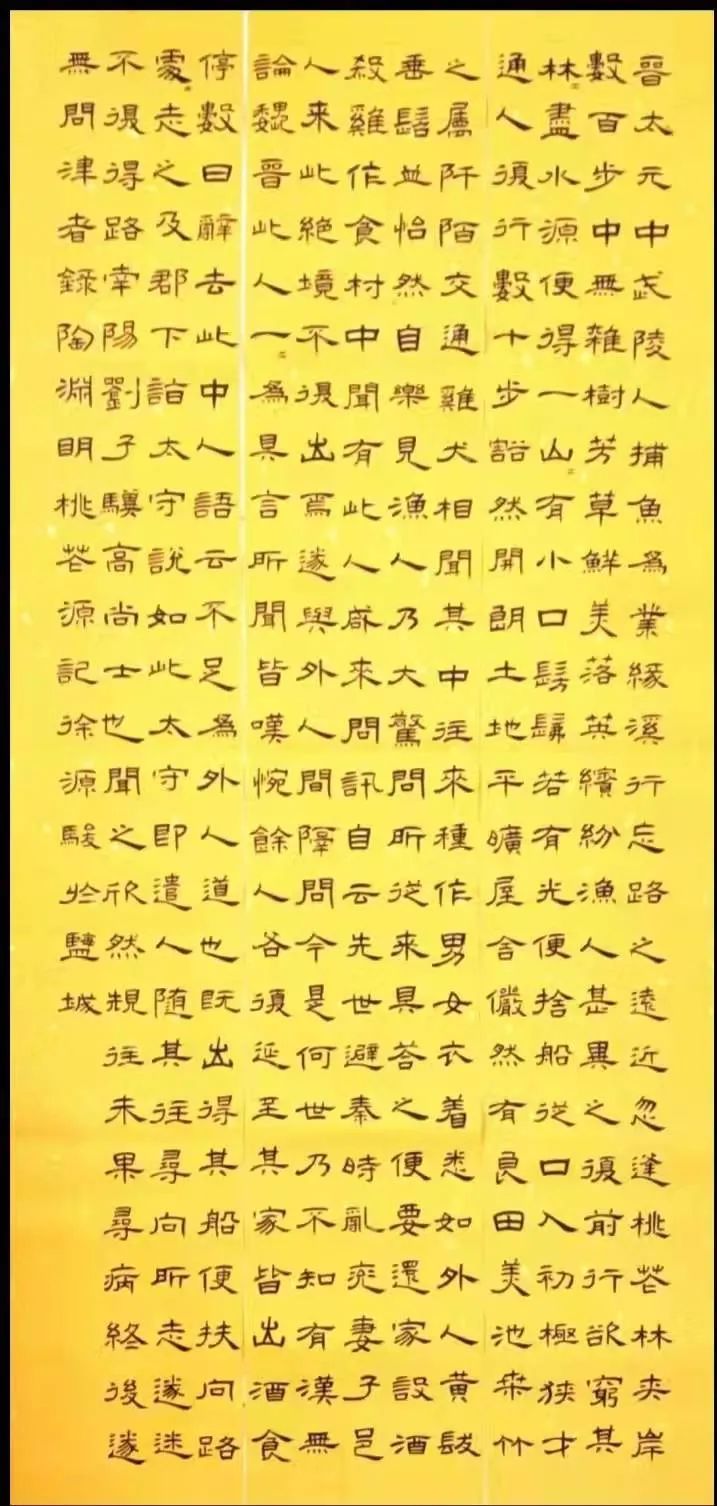 晉太元中武陵人捕魚為業緣溪行忘路之遠近忽逢桃花林夾岸
數百步中無雜樹芳草鮮美落英繽紛漁人甚異之復前行欲窮其
林盡水源便得一山有小口髣髴若有光便捨船從口入初極狹才
通人復行數十步豁然開朗土地平曠屋舍儼然有良田美池桑竹
之屬阡陌交通雞犬相聞其中往來種作男女衣着悉如外人黃髮
垂髫並怡然自樂見漁人乃大驚問所從來具荅之便要還家設酒
殺雞作食村中聞有此人咸來問訊自云先世避秦時亂率妻子邑
人來此絕境不復出焉遂與外人間隔問今是何世乃不知有漢無
論魏晉此人一為具言所聞皆嘆惋餘人各復延至其家皆出酒食
停數日辭去此中人語云不足為外人道也既出得其船便扶向路
處志之及郡下詣太守說如此太守即遣人随其往尋向所志遂迷
不復得路南陽劉子驥高尚士也聞之欣然規往未果尋病終後遂
無問津者錄陶淵明桃花源記徐源駿於鹽城